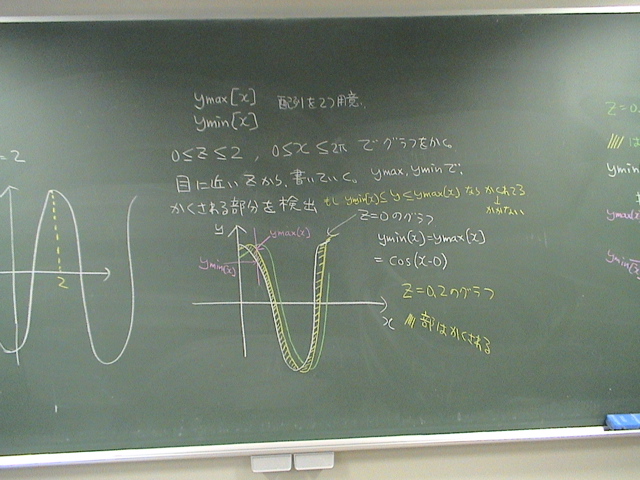 ymax[x] 配列を2つ用意.
ymin[x]
0≦z≦2 , 0≦x≦2π でグラフをかく。
目に近いzから、書いていく。 ymax, yminで、
かくされる部分を検出 もし ymin(x)≦y≦ymax(x) なら かくれてる
↓
かかない
z=0のグラフ
ymin(x)=ymax(x)
= cos(x-0)
z=0.2のグラフ
部はかくされる
y
ymax(x)
ymin(x)
x
=2
2
z=0.
は
ymin
ymax(
ymin(x